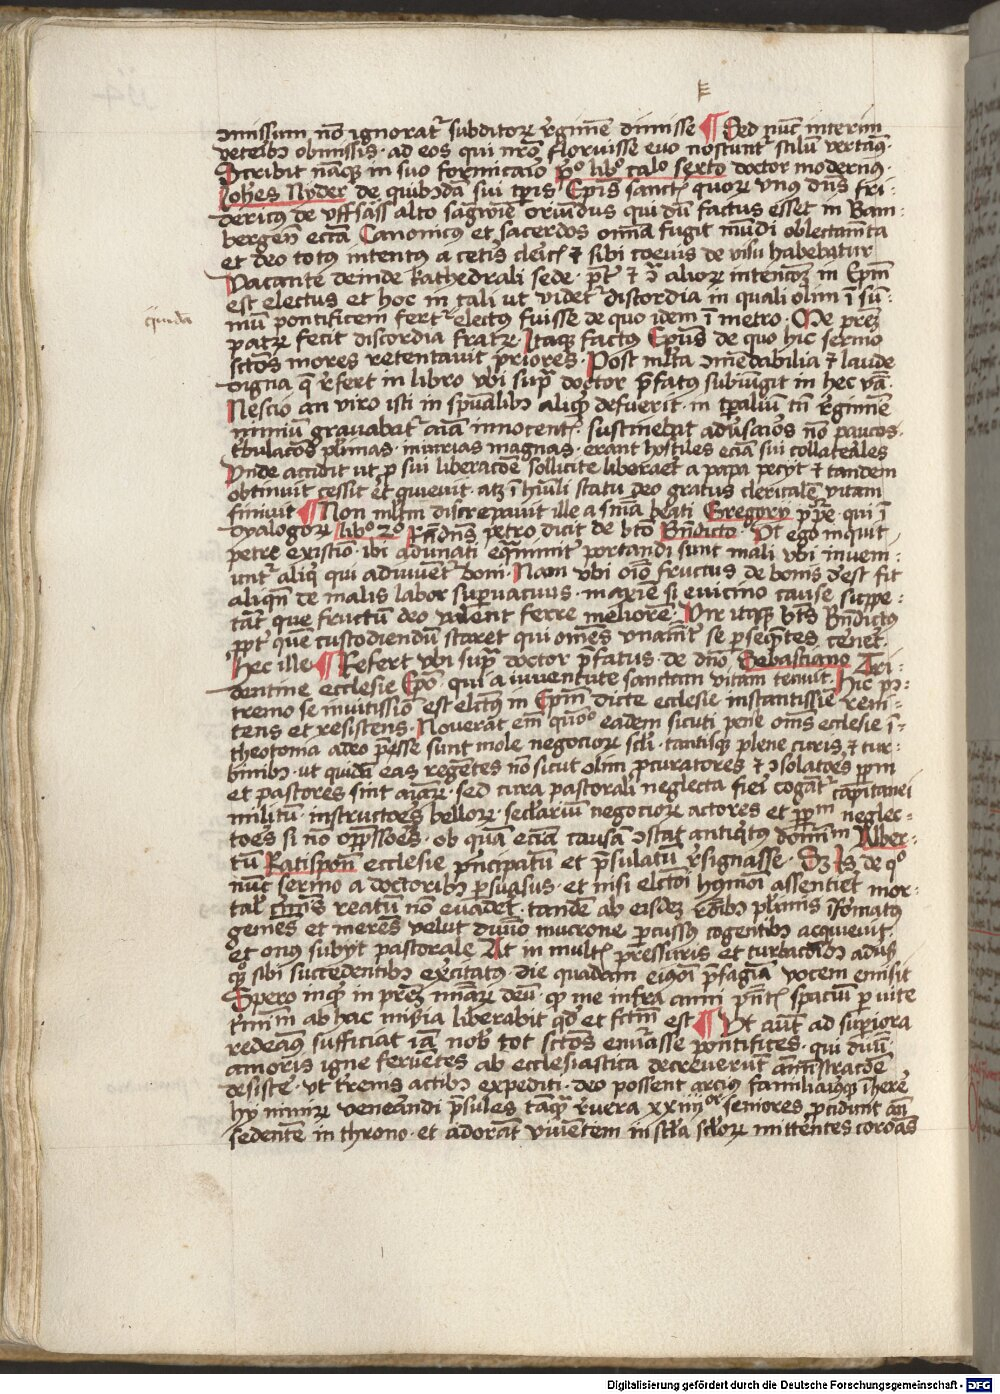 E
ɔmissum nō ignorat᷑ subditoꝝ r̄gimē dimisse ¶ Sed nūc interim
veteribꝫ obmissis · ad eos qui nr̄o floruisse euo noscunt᷑ stilū vertāꝰ ·
Scribit nāqꝫ in suo formicario p̄º libº calº sexto doctor modernꝰ
Joh̄es Nyder de quibꝰdā sui tp̄is Ep̄is sanctꝭ quoꝝ vnꝰ dn̄s fri-
dericꝰ de vffsāss alto sāgwīe oriūdus qui dū factus esset in Bam-
bergen̄ ecc̄ia Canonicꝰ et sacerdos om̄ia fugit mūdi oblectam̄ta
et deo totꝰ intentꝰ a cet̄is cleīcꝭ ⁊ sibi coeuis de visu habebatur
Vacante deinde kathedrali sede · p̄t᷑ ⁊ ꝯ᷑ alioꝝ intenc̄oꝫ in Ep̄m
est electus et hoc in tali ut videt᷑ discordia in quali olim ī sū-
quidā
mū pontificem fert᷑ electꝰ fuisse de quo idem ī metro · Me p̄reꝫ
patꝝ fecit discordia fratꝝ · Itaqꝫ factꝰ Ep̄us de quo hic sermo
sc̄tos mores retentauit p̄riores · Post ml̄ta ꝯmēdabilia ⁊ laude
digna q̄ r̄fert in libro vbi sup̄ᵃ doctor p̄fatꝰ subiūgit in hec v̄ᵃ ·
Nescio an viro isti in sp̄ualibꝫ aliqͥd defuerit · in tp̄aliū tn̄ r̄gimīe
nimiū grauabat᷑ aīa innocentꝭ · sustinebat aduersarios nō paucos ·
t᷑bulac̄oēs pl̄imas · iniurias magnas · erant hostiles ec̄ia sui collaterales
Vnde accidit ut ꝓ sui liberac̄oē sollicite liberaret̉ a papa pecyt ⁊ tandem
obtinuit cessit et quieuit · atqꝫ ī hūili statu deo gratus clericalē vitam
finiuit ¶ Non ml̄tm discrepauit ille a sn̄ia beati Gregorij pp̄e · qui ī
dyalogoꝝ libº 2º r̄ndēs petro dicit de bt̄o Bn̄dicto · Vt ego inquit
petre existiō · ibi adunati eqͣnimit᷑ portandi sunt mali vbi inuem-
unt᷑ aliqͥ qui adiuuēt᷑ boni · Nam vbi oīo fructus de bonis d̄est fit
aliqn̄ de malis labor supuacuus · maxīe si euicino cause suppe-
tāt que fructū deo valent ferre meliorē · Vir itaqꝫ bt̄s Bn̄dictꝰ
ꝓpt᷑ quē custodiendū staret qui om̄es vnaīt᷑ se ꝑseqn̄tes cernet ·
hec ille ¶ Refert vbi supͣ doctor p̄fatus · de dn̄o Sebastiano Tri-
dentine ecclesie Ep̄o · qui a iuuentute sanctam vitam tenuit · hic pͦ-
tremo se inuitissīo est elct̄ꝰ in Ep̄m dicte ecclesie instantissīe reni-
tens et resistens · Nouerat em̄ quōº eadem sicuti pene om̄s ecclesie ī
theotonia adeo p̄esse sunt mole negocioꝝ sc̄li · tantisqꝫ plene curis ⁊ tur-
binibꝫ · ut quidā eas regētes nō sicut olim ꝓcuratores ⁊ ꝯsolatoēs pp̄m
et pastores sint aīaꝝ · sed cura pastorali neglecta fiei cogāt᷑ capitanei
militū · instructoēs belloꝝ · seclariū negocioꝝ actores et pp̄m neglec-
toēs si nō opp̄ssoēs · ob quā ec̄iā causā ꝯstat antiqͥtus dominum Alber-
tū Ratispon̄ ecclesie p̄ncipatū et p̄sulatū r̄signasse · Sꝫ Is de qº
nūc sermo a doctoribꝫ ꝑsuasus · et nisi elc̄oī hꝰmōi assentiet̉ mor-
tal̉ crīnis reatū nō euadet̉ · tandē ab eisdē r̄oībꝫ pl̄imis īformatꝰ
gemēs et merēs velut diuīo mucrone ꝑcussꝰ cogentibꝫ acquieuit ·
et onꝰ subyt pastorale At in multꝭ pressuris et turbac̄oībꝫ aduſ
qꝫ sibi succedentibꝫ ex̄citatus · die quadam eiꝰmōi p̄sagiā vocem emisit
Spero inqͥt in p̄reꝫ mīaꝝ deū · qͥ me infra anni p̄n̄tꝭ spaciū ꝑ vite
t᷑minū ab hac mis̄ia liberabit qd̄ et fc̄tm est ¶ Vt aūt ad superiora
redeāꝰ sufficiat iā nob̄ tot sc̄tos enūrasse pontifices · qui diuīi
amoris igne feruētes ab ecclesiastica decreuerūt amīstrac̄oē
desistē · vt t᷑renis actibꝫ expediti · deo possent arcius familiariꝰqꝫ īherē
hy nimiꝝ venerandi p̄sules tāqͣ r̄uera xxiiijᵒʳ seniores ꝓcidunt an̄
sedentē in throno · et adorāt viuētem in sc̄la sc̄loꝝ mittentes coroās
Digitalisierung gefördert durch die Deutsche Forschungsgemeinschaft - DFG